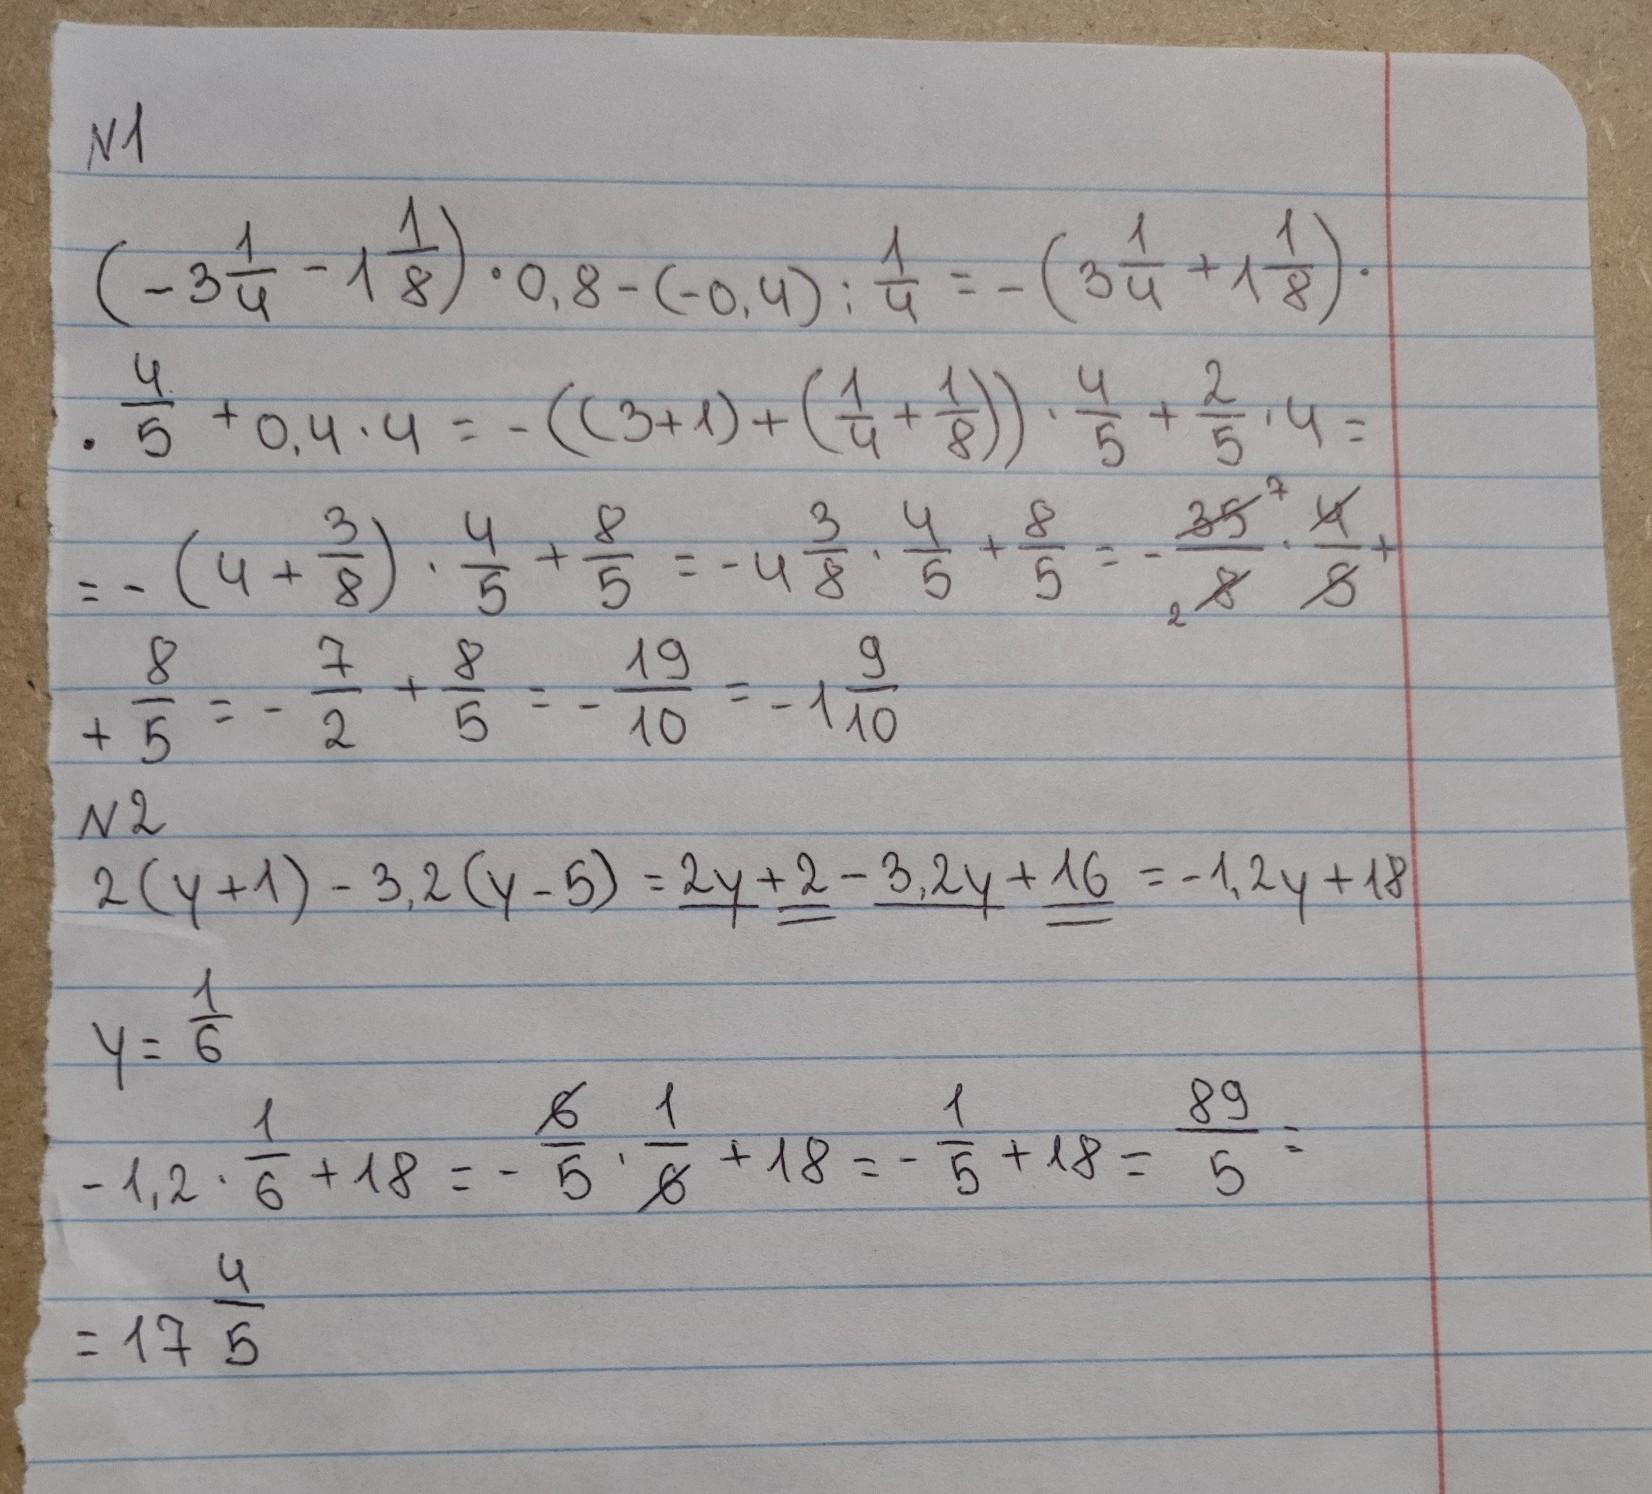 N1
(-3 1/4 - 1 1/8) · 0,8 - (-0,4) : 1/4 = -(3 1/4 + 1 1/8) ·
· 4/5 + 0,4 · 4 = -((3+1) + (1/4 + 1/8)) · 4/5 + 2/5 · 4 =
= -(4 + 3/8) · 4/5 + 8/5 = -4 3/8 · 4/5 + 8/5 = - 35 7/2 8 · 4/5 +
+ 8/5 = - 7/2 + 8/5 = - 19/10 = -1 9/10
N2
2(y+1) - 3,2(y-5) = 2y + 2 - 3,2y + 16 = -1,2y + 18
y = 1/6
-1,2 · 1/6 + 18 = - 6/5 · 1/6 + 18 = - 1/5 + 18 = 89/5 =
= 17 4/5